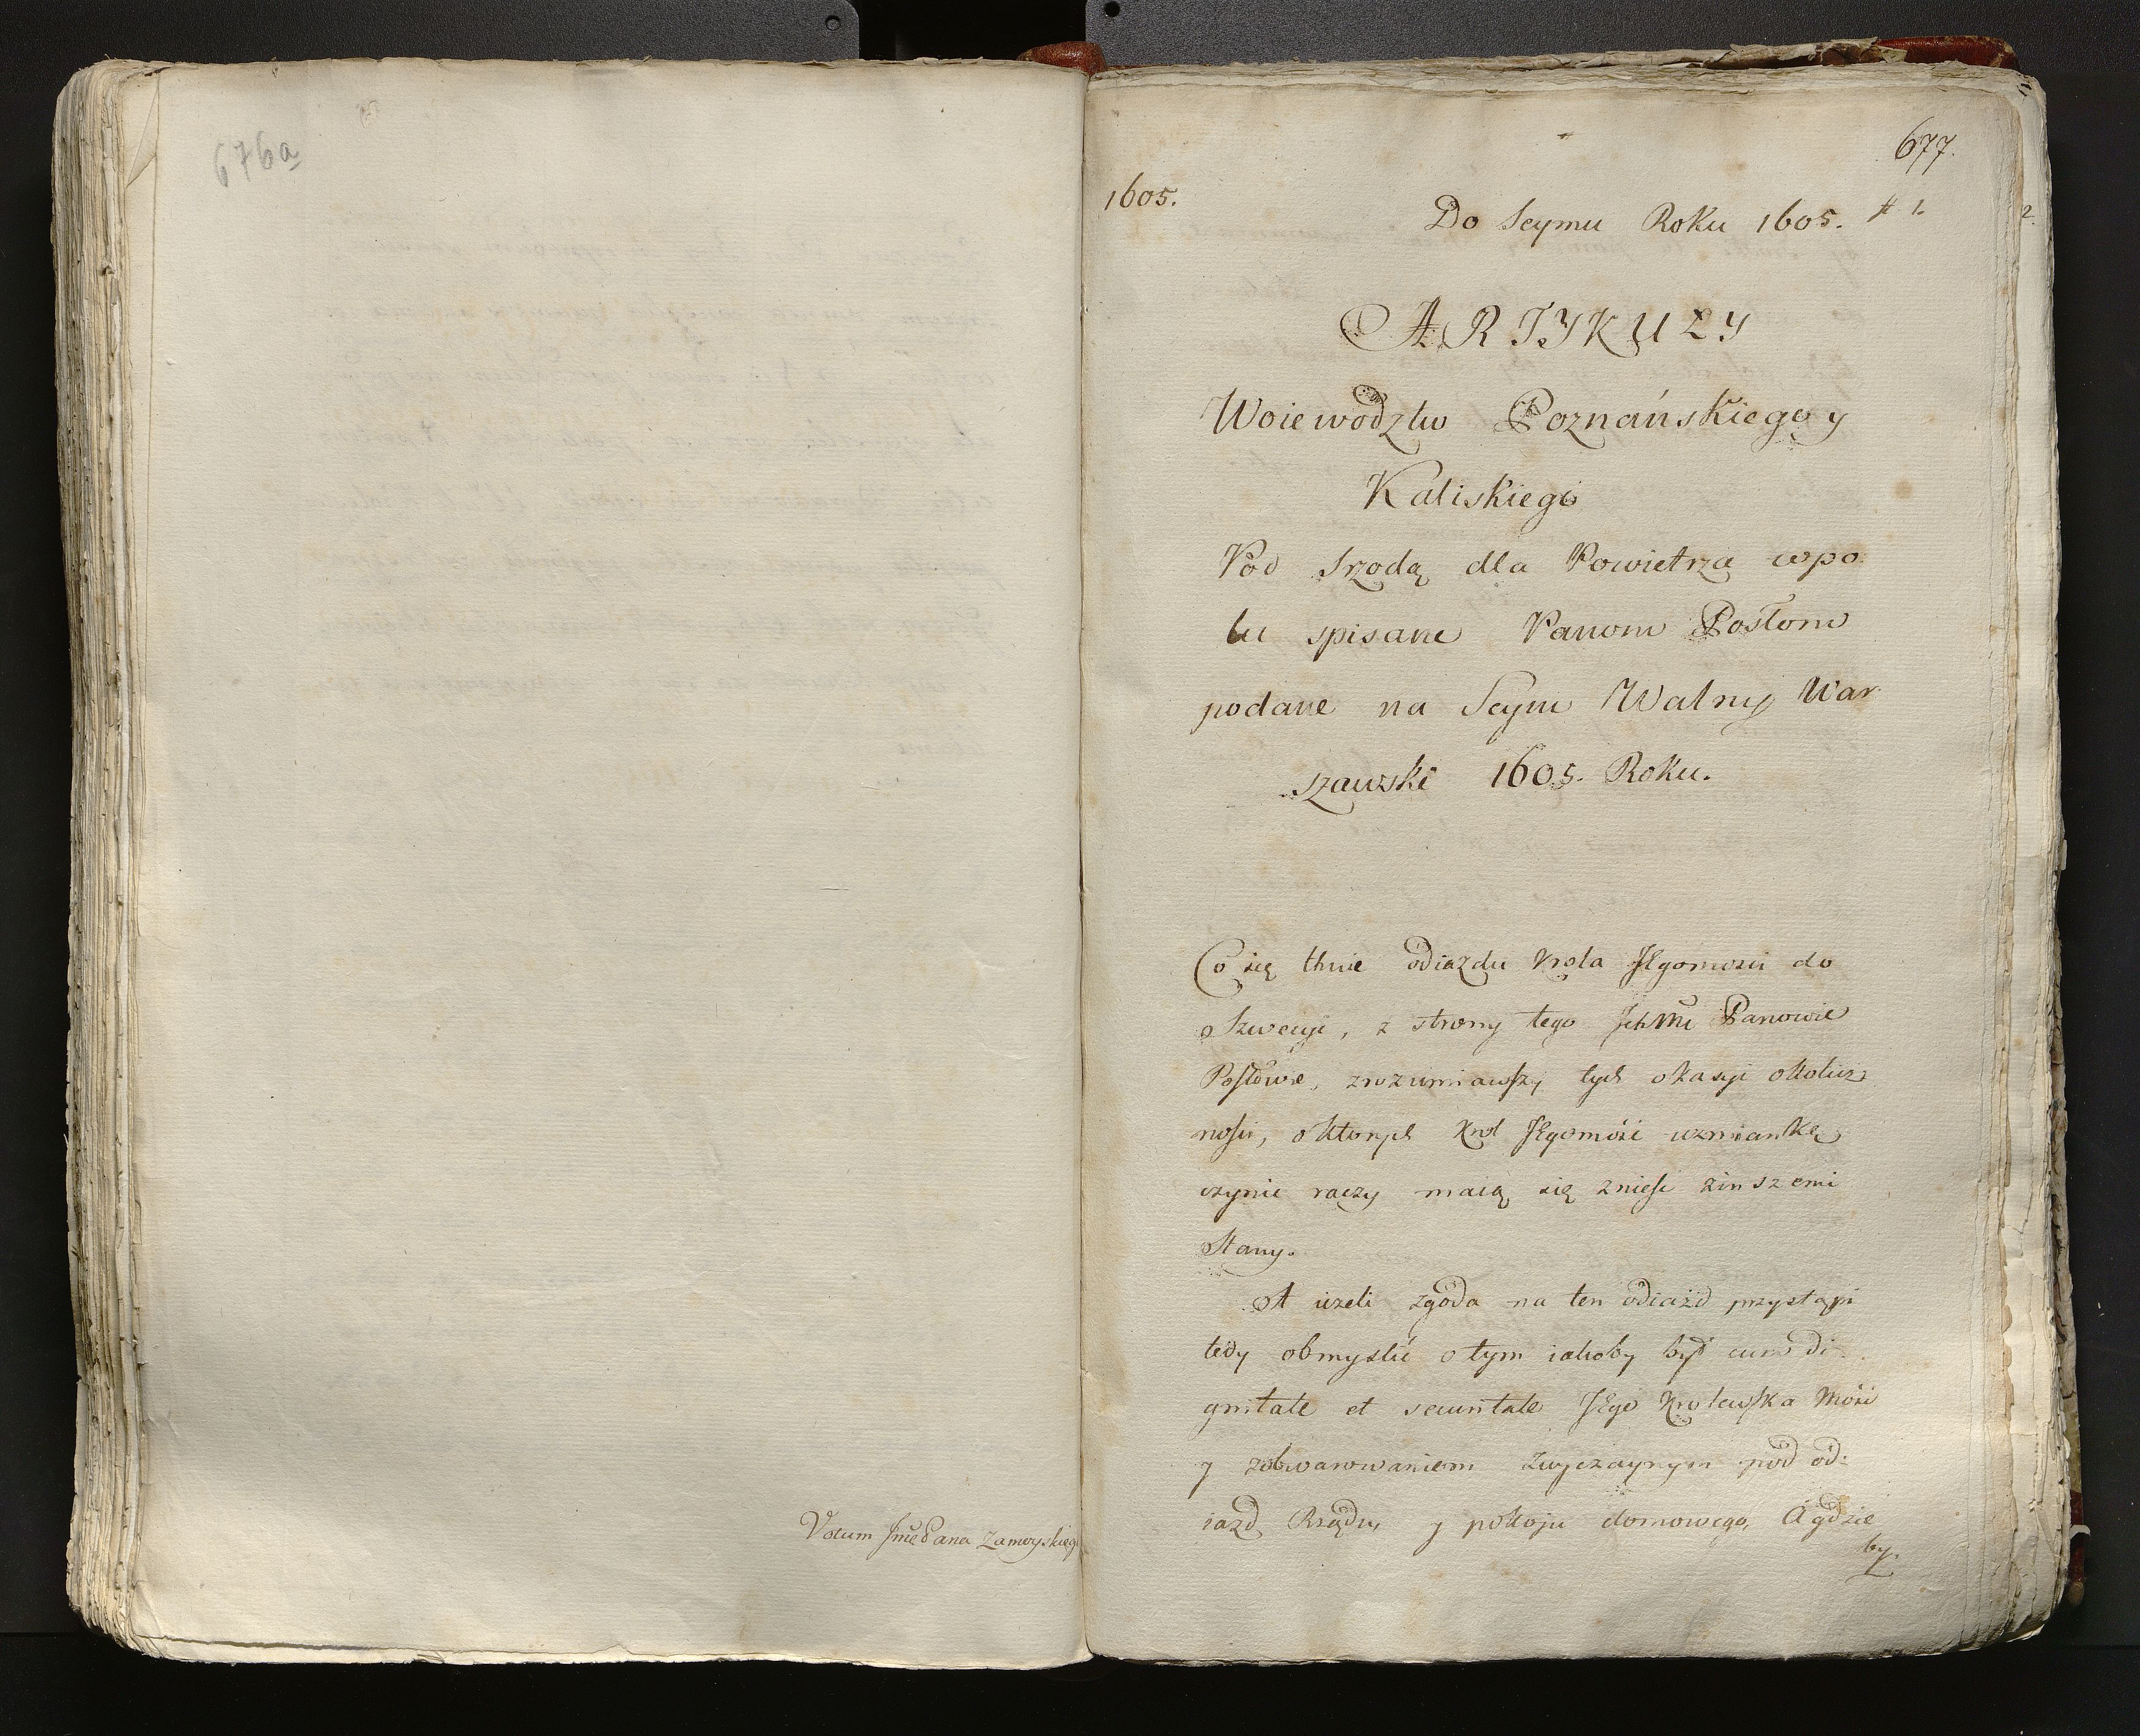 676a
Votum Jmę Pana Zamoyskieg
677.
1605.
Do Seymu Roku 1605. # 1.
2.
ARTYKUŁY
Woiewodztw Poznańskiego y
Kaliskiego
Pod Srzodą dla Powietrza wpo
lu spisane Panom Posłom
podane na Seym Walny War
szawski 1605. Roku.
Co się tknie odiazdu Krola JEgomości do
Szwecyi, z strony tego Ichmć Panowie
Posłowie, zrozumiawszy tych okasyi okolicz
nosci, o ktorych Krol JEgomość wzmiankę
czynić raczy maią się znieść zinszemi
Stany.
A ieżeli zgoda na ten odiazd przystąpi
tedy obmyslić o tym iakoby był cum di
gnitate et securitate JEgo Krolewska Mość
y zobwarowaniem zwyczaynym pod od:
iazd, Rządu, y pokoju domowego, A gdzie
by.